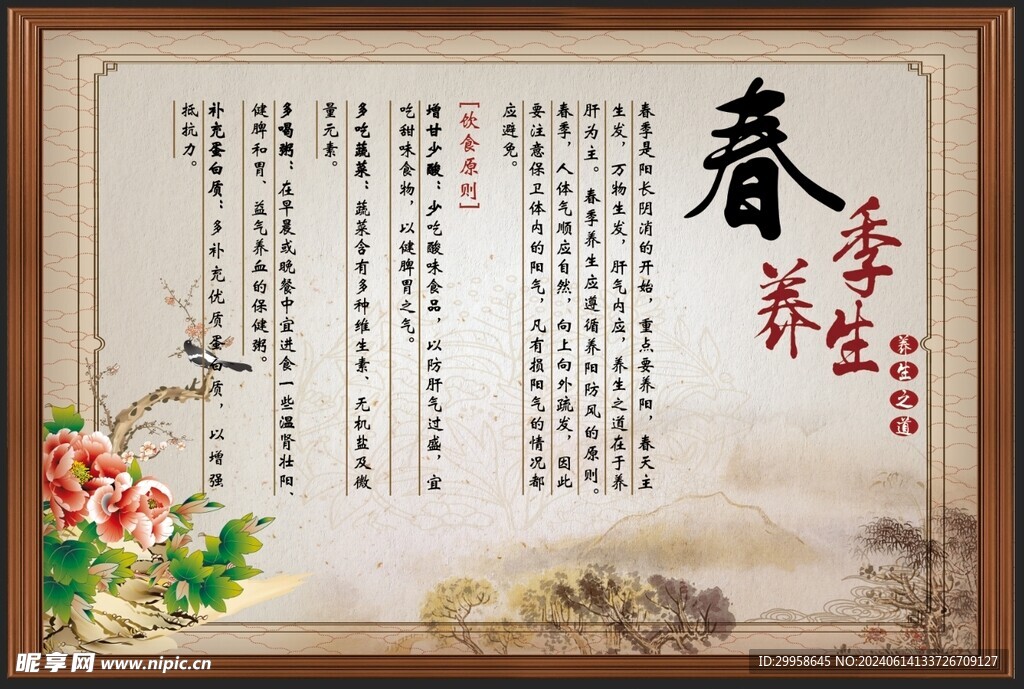 春
季
养生
养生之道
春季是阳长阴消的开始，重点要养阳，春天主
生发，万物生发，肝气内应，养生之道在于养
肝为主。春季养生应遵循养阳防风的原则。
春季，人体气顺应自然，向上向外疏发，因此
要注意保卫体内的阳气，凡有损阳气的情况都
应避免。
[饮食原则]
增甘少酸：少吃酸味食品，以防肝气过盛，宜
吃甜味食物，以健脾胃之气。
多吃蔬菜：蔬菜含有多种维生素、无机盐及微
量元素。
多喝粥：在早晨或晚餐中宜进食一些温肾壮阳、
健脾和胃、益气养血的保健粥。
补充蛋白质：多补充优质蛋白质，以增强
抵抗力。
昵享网 www.nipic.cn
ID:29958645 NO:20240614133726709127